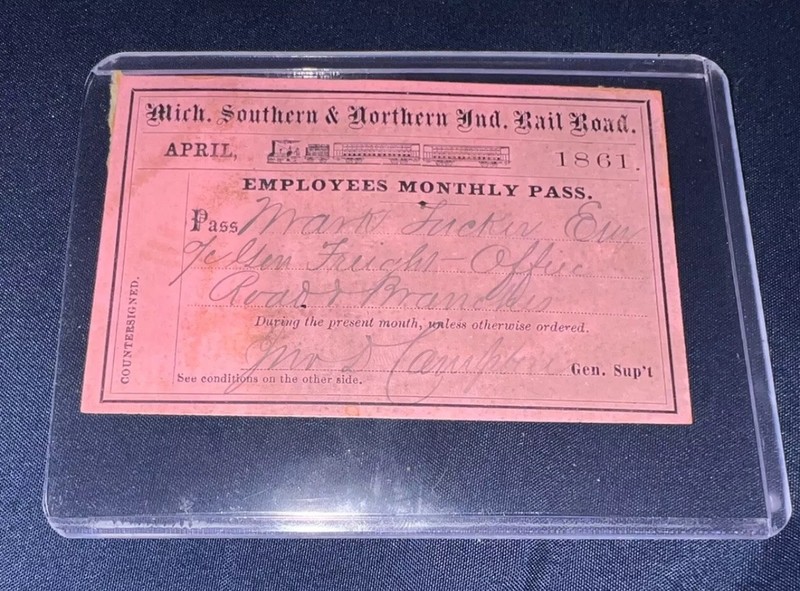 Mich. Southern & Northern Ind. Rail Road.
APRIL, 1861.
EMPLOYEES MONTHLY PASS.
Pass Mark Tucker
Gen Freight Office
Road & Branches
During the present month, unless otherwise ordered.
Jno D Campbell Gen. Sup't
See conditions on the other side.
COUNTERSIGNED.